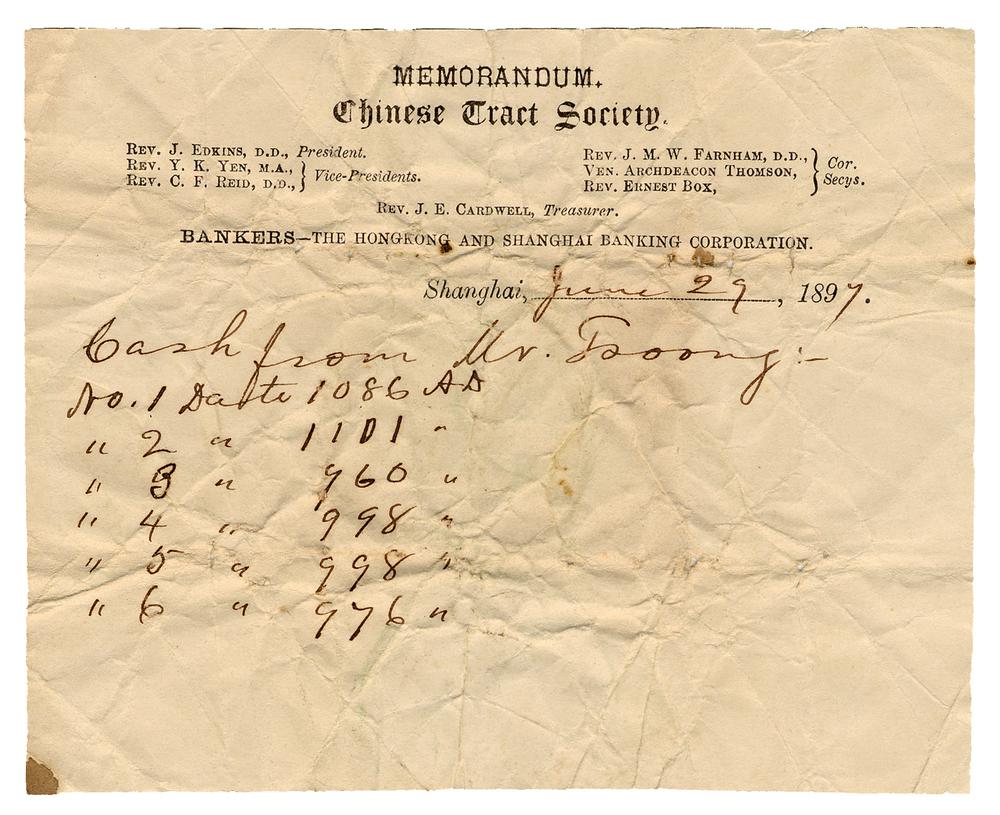 MEMORANDUM.
Chinese Tract Society.
REV. J. EDKINS, D.D., President.
REV. Y. K. YEN, M.A., } Vice-Presidents.
REV. C. F. REID, D.D.,
REV. J. M. W. FARNHAM, D.D., } Cor. Secys.
VEN. ARCHDEACON THOMSON,
REV. ERNEST BOX,
REV. J. E. CARDWELL, Treasurer.
BANKERS—THE HONGKONG AND SHANGHAI BANKING CORPORATION.
Shanghai, June 29, 1897.
Cash from Mr. Tsoong:-
No. 1 Date 1086 AD
" 2 " 1101 "
" 3 " 960 "
" 4 " 998 "
" 5 " 998 "
" 6 " 976 "